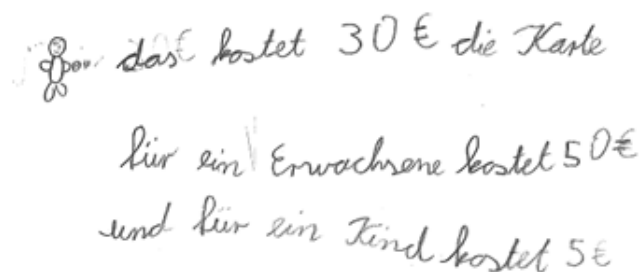 das kostet 30 € die Karte
für ein Erwachsene kostet 50€
und für ein Kind kostet 5€